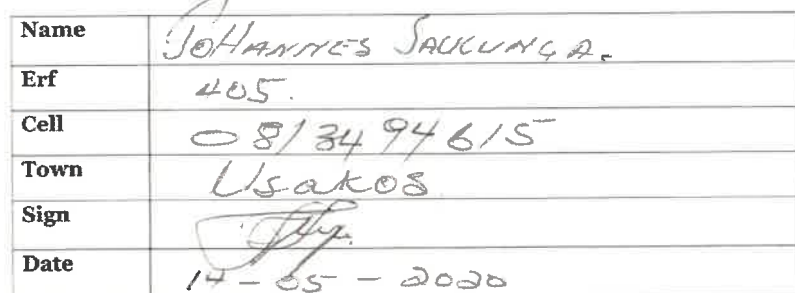 Name JOHANNES SAUKUNGA.
Erf 405.
Cell 0813494615
Town Usakos
Sign
Date 14-05-2020